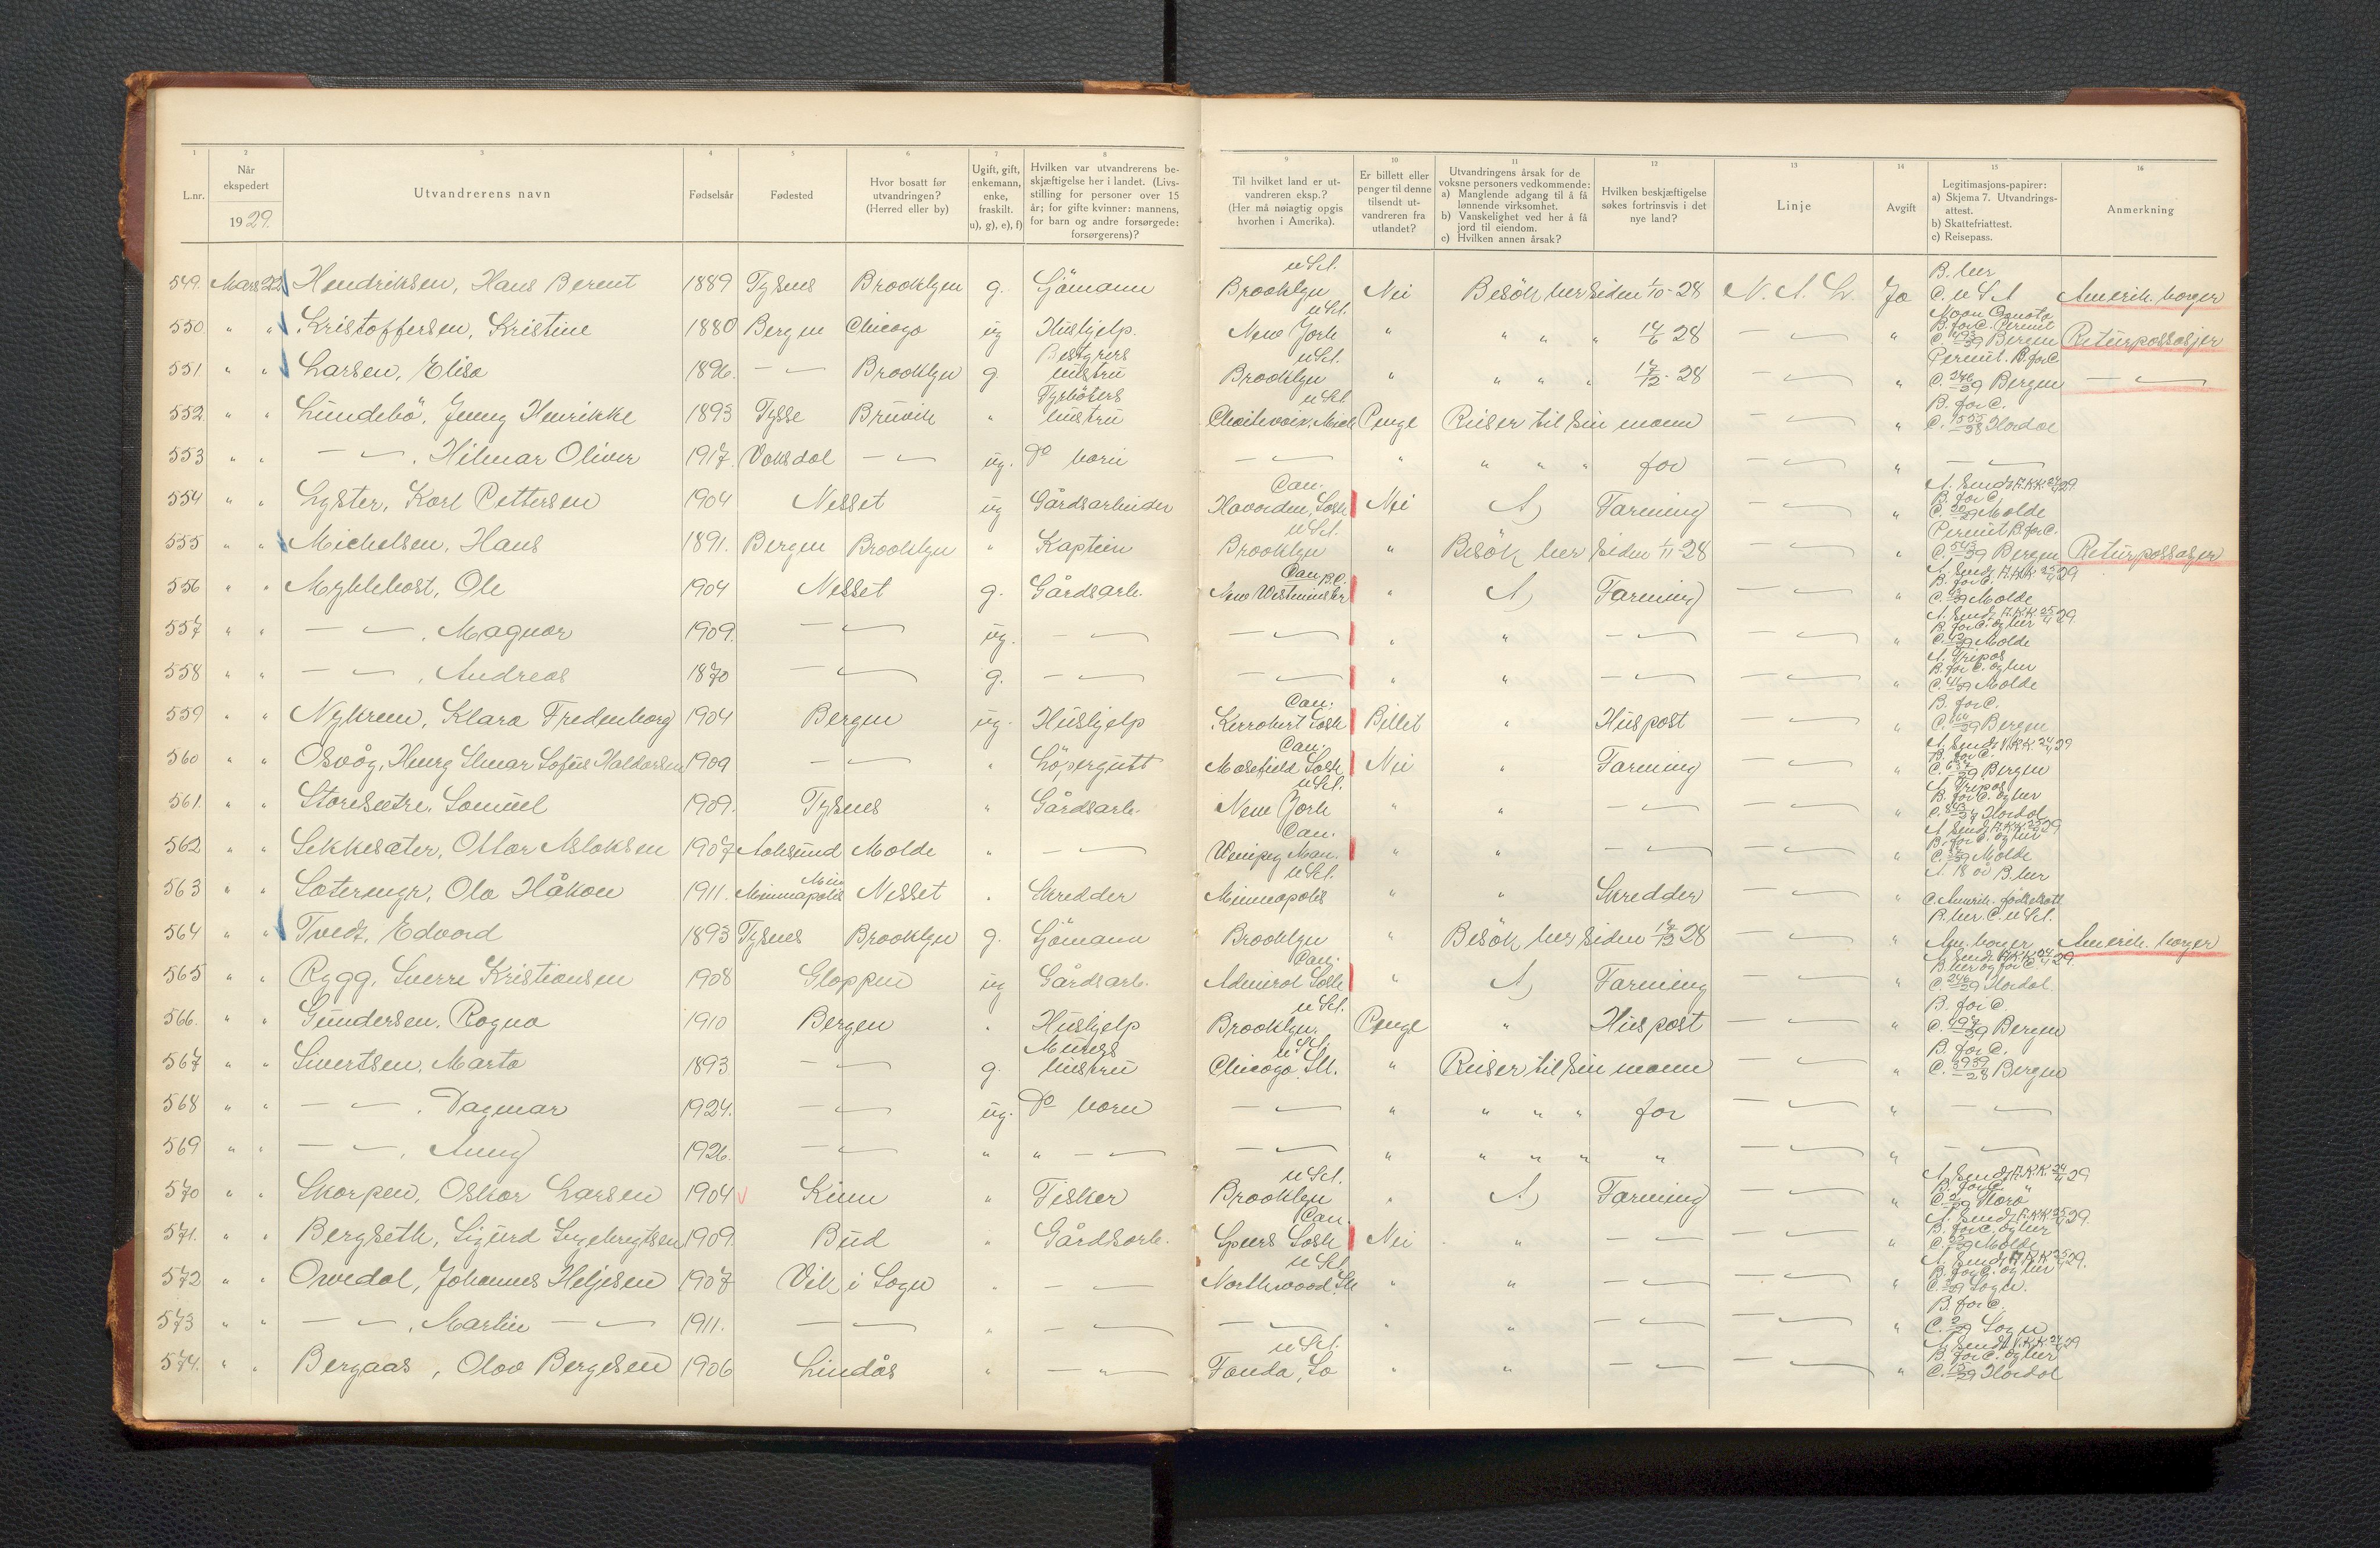 1 2 3 4 5 6 7 8 9 10 11 12 13 14 15 16
L.nr. | Når ekspedert 1929. | Utvandrerens navn | Fødselsår | Fødested | Hvor bosatt før utvandringen? (Herred eller by) | Ugift, gift, enkemann, enke, fraskilt. u), g), e), f) | Hvilken var utvandrerens beskjæftigelse her i landet. (Livsstilling for personer over 15 år; for gifte kvinner: mannens, for barn og andre forsørgede: forsørgerens)? | Til hvilket land er utvandreren eksp.? (Her må nøiagtig opgis hvorhen i Amerika). | Er billett eller penger til denne tilsendt utvandreren fra utlandet? | Utvandringens årsak for de voksne personers vedkommende: a) Manglende adgang til å få lønnende virksomhet. b) Vanskelighet ved her å få jord til eiendom. c) Hvilken annen årsak? | Hvilken beskjæftigelse søkes fortrinsvis i det nye land? | Linje | Avgift | Legitimasjons-papirer: a) Skjema 7. Utvandringsattest. b) Skattefriattest. c) Reisepass. | Anmerkning
549. Mars 22 Hendriksen, Hans Berent 1889 Tysnes Brooklyn g. Sjömann Brooklyn U.S.A. Nei Besök her siden 1/10-28 N. A. L. Ja B. her C. U.S.A. Amerik. borger
550 " " Kristoffersen, Kristine 1880 Bergen Chicago ug Hushjelp. New York U.S.A. " " " " 14/6 28 — " — " B. for C. Permit C. Bergen Returpassasjer
551 " " Larsen, Elisa 1896. — " — Brooklyn g hustru Brooklyn U.S.A. " " " " 17/12-28 — " — " Permit. B. for C. C. 246/29 Bergen — " —
552 " " Lundebö, Jenny Henrikke 1893 Tysse Bruvik " hustru U.S.A. Penge Reiser til sin mann — " — " B. for C. C. 1555/28 Hordal
553 " " — " —, Hilmar Oliver 1917. Vaksdal — " — ug. Do barn — " — " " " " far — " — " — " —
554 " " Lyster, Karl Pettersen 1904 Nesset ug Gårdsarbeider Can. Sask Nei A) Farming — " — " B. for C. C. Molde
555 " " Michelsen, Hans 1891. Bergen Brooklyn " Kaptein Brooklyn U.S.A. " Besök her siden 1/11-28 — " — " Permit B. for C. C. 545/29 Bergen Returpassasjer
556 " " Myklebost, Ole 1904 Nesset g. Gårdsarb. New Westminster Can. B.C. " A) Farming — " — " B. for C. C. Molde
557 " " — " —, Magnar 1909. — " — ug. — " — — " — " " — " — — " — " B. for C. og her C. Molde
558 " " — " —, Andreas 1870 — " — g. — " — — " — " " — " — — " — " A. Tripos B. for C. og her C. Molde
559 " " Nykrem, Klara Fredenborg 1904 Bergen ug. Hushjelp Kerrobert Sask Can. Billet " Huspost — " — " B. for C. C. Bergen
560 " " Osvåg, Henry Elmar Sofus Haldorsen 1909 — " — " Löpergutt Sask Can. Nei " Farming — " — " B. for C. C. Bergen
561. " " Storesætre, Samuel 1909. Tysnes " Gårdsarb. New York U.S.A. " " — " — — " — " A. Tripos B. for C. og her C. Hordal
562 " " Sekkesæter, Ottar Aslaksen 1907 Molde " — " — Winipeg Man. Can. " " — " — — " — " B. for C. og her C. Molde
563 " " Sæterengr, Ola Håkon 1911. Minneapolis Nesset " Skredder Minneapolis U.S.A. " " Skredder — " — " A. 18 år B. her C. Amerik. födselsatt
564 " " Tvedt, Edvard 1893 Tysnes Brooklyn g. Sjömann Brooklyn " Besök her siden 17/12 28 — " — " B. her. C. U.S.A. Am. borger Amerik. borger
565 " " Rygg, Sverre Kristiansen 1908 Gloppen ug Gårdsarb. Admiral Sask Can. " A) Farming — " — " B. her og for C. C. 246/29 Hordal.
566. " " Gundersen, Ragna 1910 Bergen " Hushjelp Brooklyn. U.S.A. Penge " Huspost — " — " B. for C. C. 497/29 Bergen
567 " " Sivertsen, Marta 1893 — " — g. Murers hustru Chicago Ill. U.S.A. " Reiser til sin mann — " — " B. for C. C. 3939/28 Bergen
568 " " — " —, Dagmar 1924. — " — ug. Do barn — " — " " " " far — " — " — " —
569 " " — " —, Anny 1926. — " — " " — " — — " — " " " " " — " — " — " —
570 " " Skorpen, Oskar Larsen 1904 Kinn " Fisker Brooklyn U.S.A. " A) Farming — " — " B. for C. C. Florø
571. " " Bergseth, Sigurd Ingebregtsen 1909. Bud " Gårdsarb. Speers Sask Can. Nei " — " — — " — " B. for C. og her C. Molde
572 " " Overdal, Johannes Heljesen 1907 Vik i Sogn " — " — Northwood U.S.A. " " — " — — " — " B. for C. og her C. Sogn.
573 " " — " —, Martin — " — 1911. — " — " — " — — " — " " — " — — " — " B. for C. C. Sogn
574. " " Bergaas, Olav Bergesen 1906 Lindås " — " — Fonda, Io U.S.A. " " — " — — " — " B. for C. og her C. Hordal